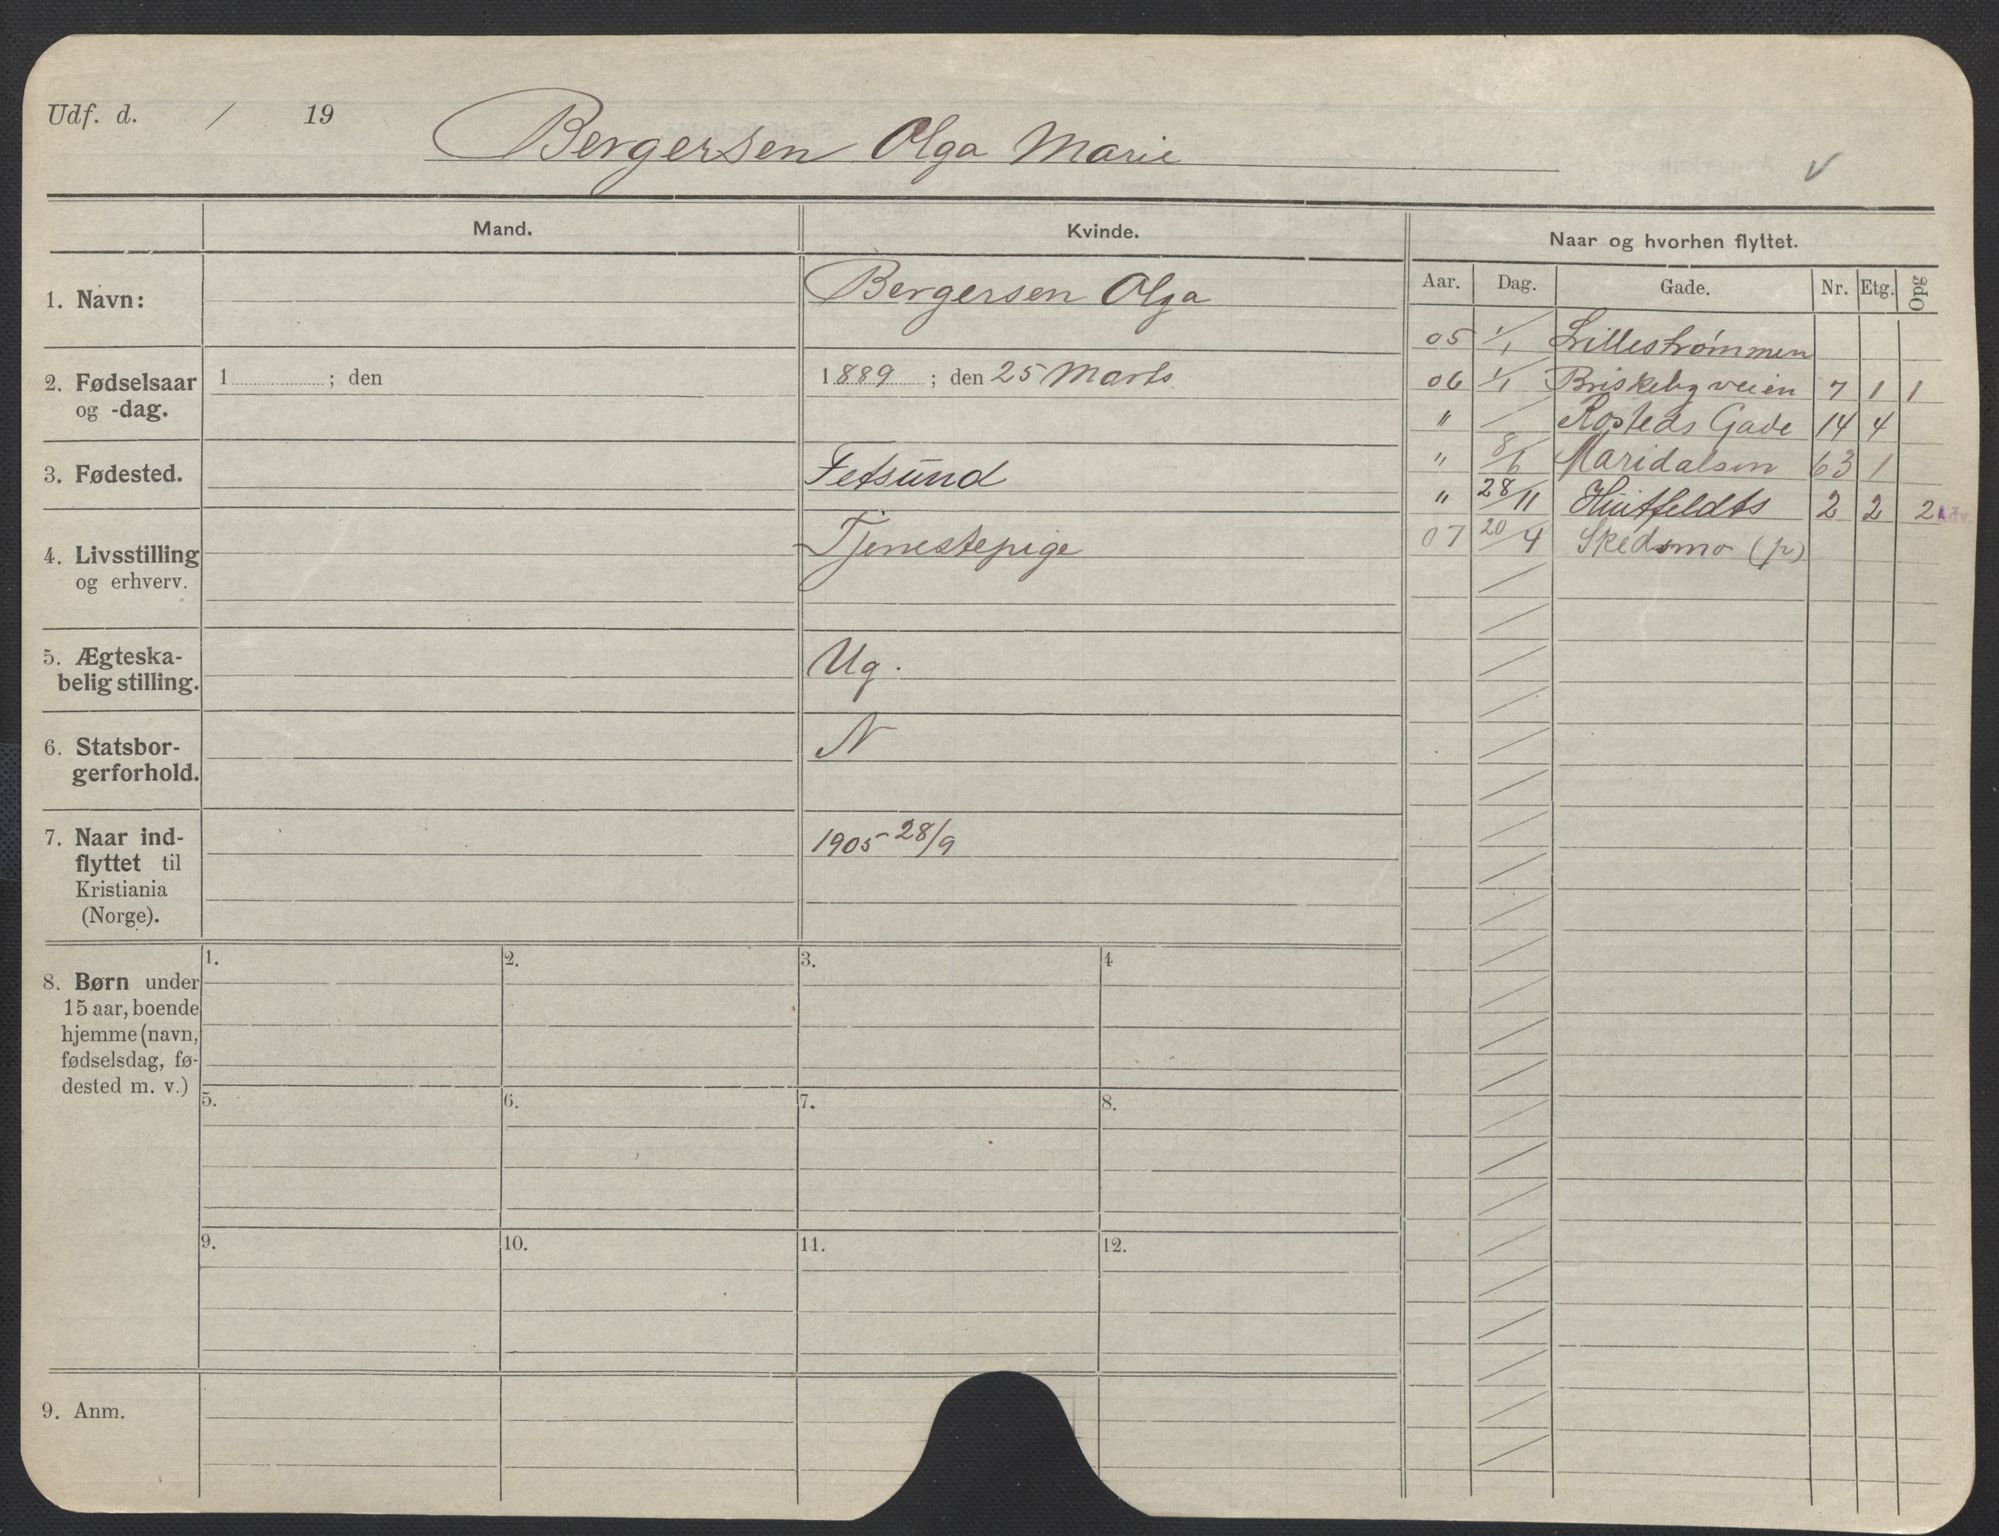 Udf. d. / 19
Bergersen Olga Marie
v
Mand.
Kvinde.
Naar og hvorhen flyttet.
Aar. Dag. Gade. Nr. Etg. Opg
1. Navn:
Bergersen Olga
2. Fødselsaar
og -dag.
1 ; den
1889 ; den 25 Marts
3. Fødested.
Fetsund
4. Livsstilling
og erhverv.
Tjenestepige
5. Ægteska-
belig stilling.
Ug.
6. Statsbor-
gerforhold.
N
7. Naar ind-
flyttet til
Kristiania
(Norge).
1905 28/9
05 1/1 Lillestrømmen
06 1/1 Briskebyveien 7 1 1
" / Rosteds Gade 14 4
" 8/6 Maridalsen 63 1
" 28/11 Huitfeldts 2 2 2 Adv.
07 20/4 Skedsmo (p)
8. Børn under
15 aar, boende
hjemme (navn,
fødselsdag, fø-
dested m. v.)
1. 2. 3. 4
5. 6. 7. 8.
9. 10. 11. 12.
9. Anm.